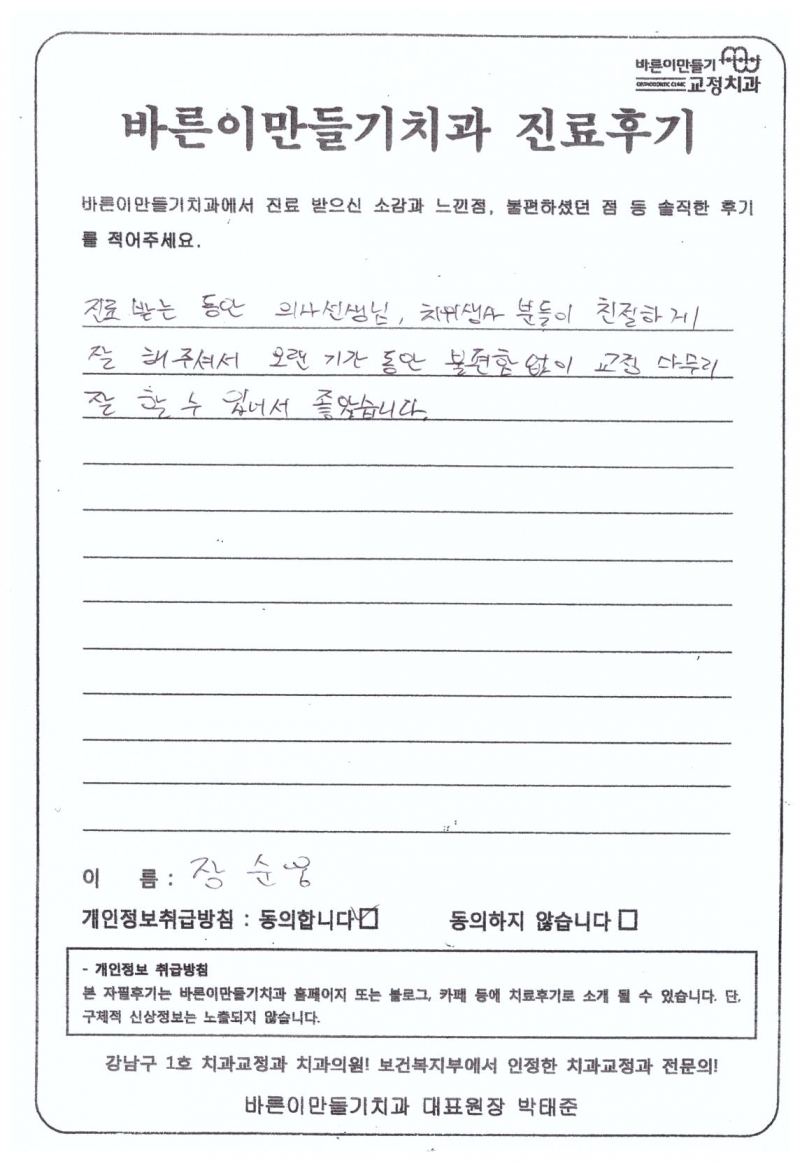 바른이만들기
ORTHODONTIC CLINIC 교정치과
바른이만들기치과 진료후기
바른이만들기치과에서 진료 받으신 소감과 느낀점, 불편하셨던 점 등 솔직한 후기
를 적어주세요.
진료 받는 동안 의사선생님, 치위생사 분들이 친절하게
잘 해주셔서 오랜 기간 동안 불편함 없이 교정 마무리
잘 할 수 있어서 좋았습니다.
이 름 : 장순
개인정보취급방침 : 동의합니다 동의하지 않습니다
- 개인정보 취급방침
본 자필후기는 바른이만들기치과 홈페이지 또는 블로그, 카페 등에 치료후기로 소개 될 수 있습니다. 단,
구체적 신상정보는 노출되지 않습니다.
강남구 1호 치과교정과 치과의원! 보건복지부에서 인정한 치과교정과 전문의!
바른이만들기치과 대표원장 박태준